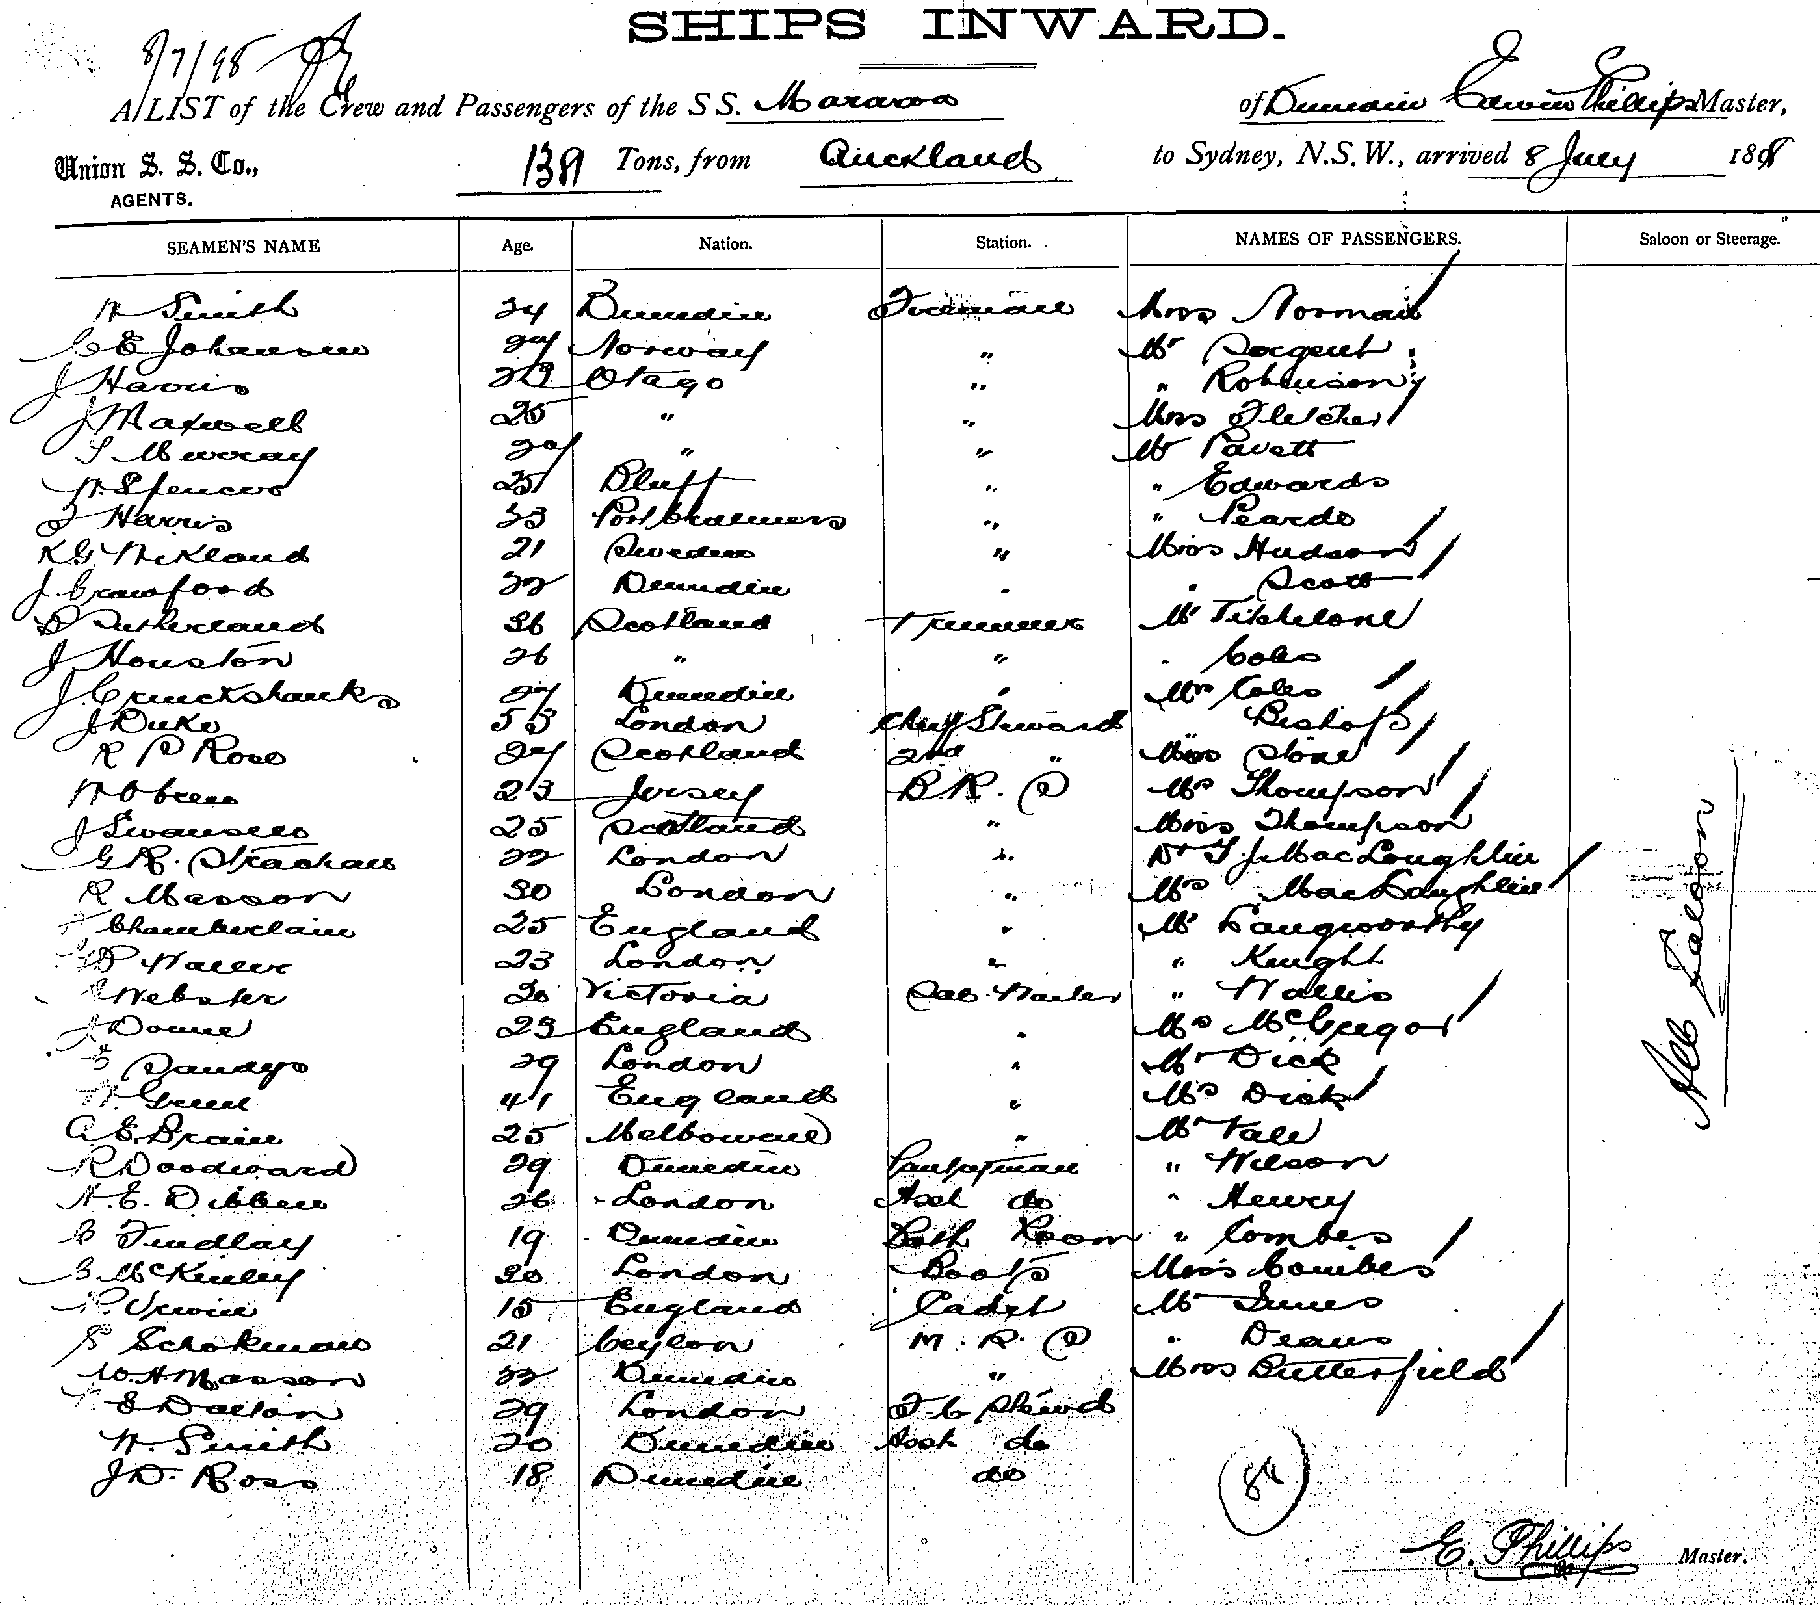 SHIPS INWARD.
8/7/98
A LIST of the Crew and Passengers of the S S. Mararoa of Dunedin Edwin Phillips Master,
Union S. S. Co., 1381 Tons, from Auckland to Sydney, N.S.W., arrived 8 July 1898
AGENTS.
SEAMEN'S NAME Age. Nation. Station. NAMES OF PASSENGERS. Saloon or Steerage.
W Smith 24 Dunedin Fireman Miss Norman
C E Johansen 27 Norway " Mr Sargent
J Harris Otago " " Robinson
J Maxwell 25 " " Miss Fletcher
Murray 29 " " Mr Pavett
W. Spencer 25 Bluff " " Edwards
J Harris 23 Port Chalmers " " Pearde
K G Wikland 21 Sweden " Miss Hudson
J. Crawford 22 Dunedin " " Scott
Sutherland 36 Scotland Trimmer Mr
J Houston 26 " " " Coles
J. Cruickshanks 27 Dunedin " Mrs Coles
J Duke 53 London Chief Steward " Bishop
R P Rose 27 Scotland 2nd " Miss Stone
W Obrien 23 Jersey B R. S Mrs Thompson
J Swanson 25 Scotland " Miss Thompson
G R. Strachan 22 London " Dr T J MacLoughlin
R Masson 30 London " Mrs MacLoughlin
Chamberlain 25 England " Mr Langworthy
Waller 23 London " " Knight
Webster 20 Victoria Sal. Waiter " Wallis
J Donne 23 England " Mrs McGregor
Sandys 29 London " Mr Dick
W. Green 41 England " Mrs Dick
A E. Brain 25 Melbourne " Mr Vale
R Woodward 29 Dunedin Pantryman " Wilson
W. E. Dibben 26 London Asst do " Henry
Findlay 19 Dunedin Bath Room " Combes
McKinley 30 London Boots Miss Combes
Irwin 15 England Cadet Mr Innes
Schokman 21 Ceylon M. R. S " Deans
W. H Masson 22 Dunedin " Miss Butterfield
E Dalton 29 London F. C Stewd
W. Smith 20 Dunedin Asst do
J D. Ross 18 Dunedin do
All Saloon
E. Phillips Master.